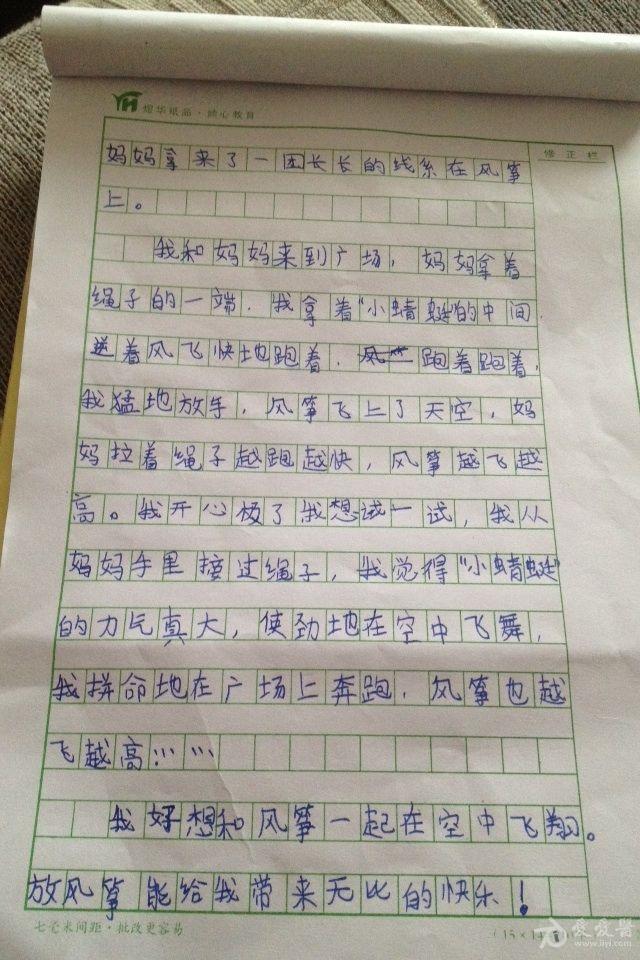 煜华纸品·倾心教育
修正栏
妈妈拿来了一团长长的线系在风筝
上。
我和妈妈来到广场，妈妈拿着
绳子的一端，我拿着“小蜻蜓”的中间，
逆着风飞快地跑着，跑着跑着，
我猛地放手，风筝飞上了天空，妈
妈拉着绳子越跑越快，风筝越飞越
高。我开心极了我想试一试，我从
妈妈手里接过绳子，我觉得“小蜻蜓”
的力气真大，使劲地在空中飞舞，
我拼命地在广场上奔跑，风筝也越
飞越高……
我好想和风筝一起在空中飞翔。
放风筝能给我带来无比的快乐！
七毫米间距·批改更容易
爱爱医
www.iiyi.com